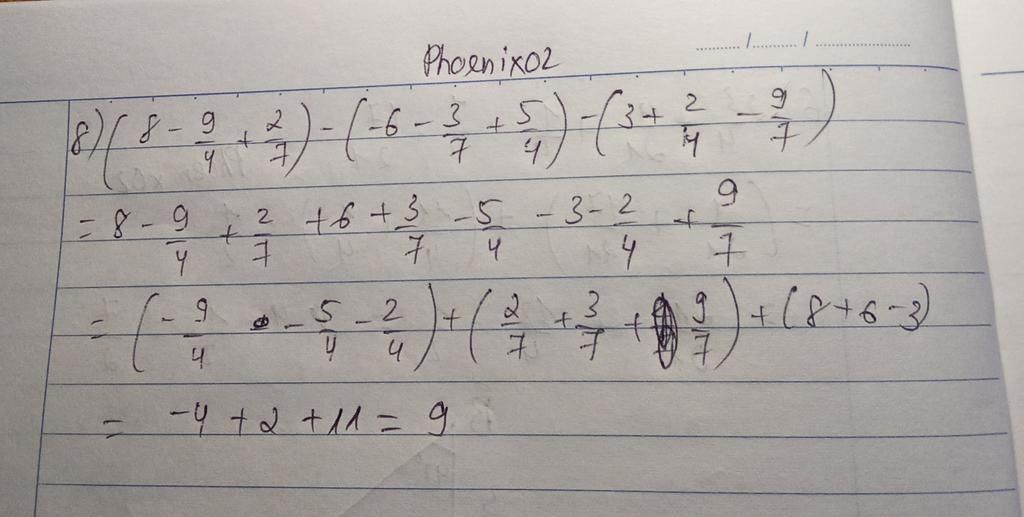 Phoenix02
8) (8 - 9/4 + 2/7) - (-6 - 3/7 + 5/4) - (3 + 2/4 - 9/7)
= 8 - 9/4 + 2/7 + 6 + 3/7 - 5/4 - 3 - 2/4 + 9/7
= (-9/4 - 5/4 - 2/4) + (2/7 + 3/7 + 9/7) + (8 + 6 - 3)
= -4 + 2 + 11 = 9